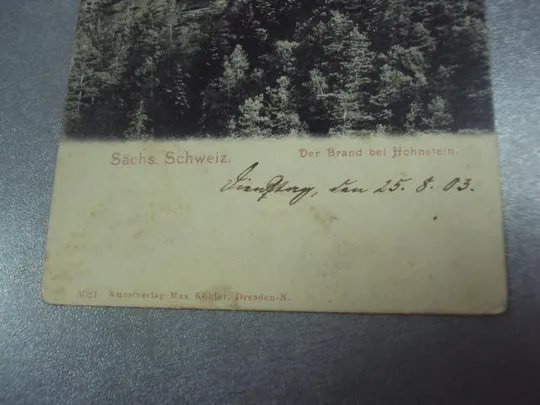 Sächs. Schweiz. Der Brand bei Hohnstein.
Dienstag, den 25. 8. 03.
5021 Kunstverlag Max Köhler, Dresden-N.